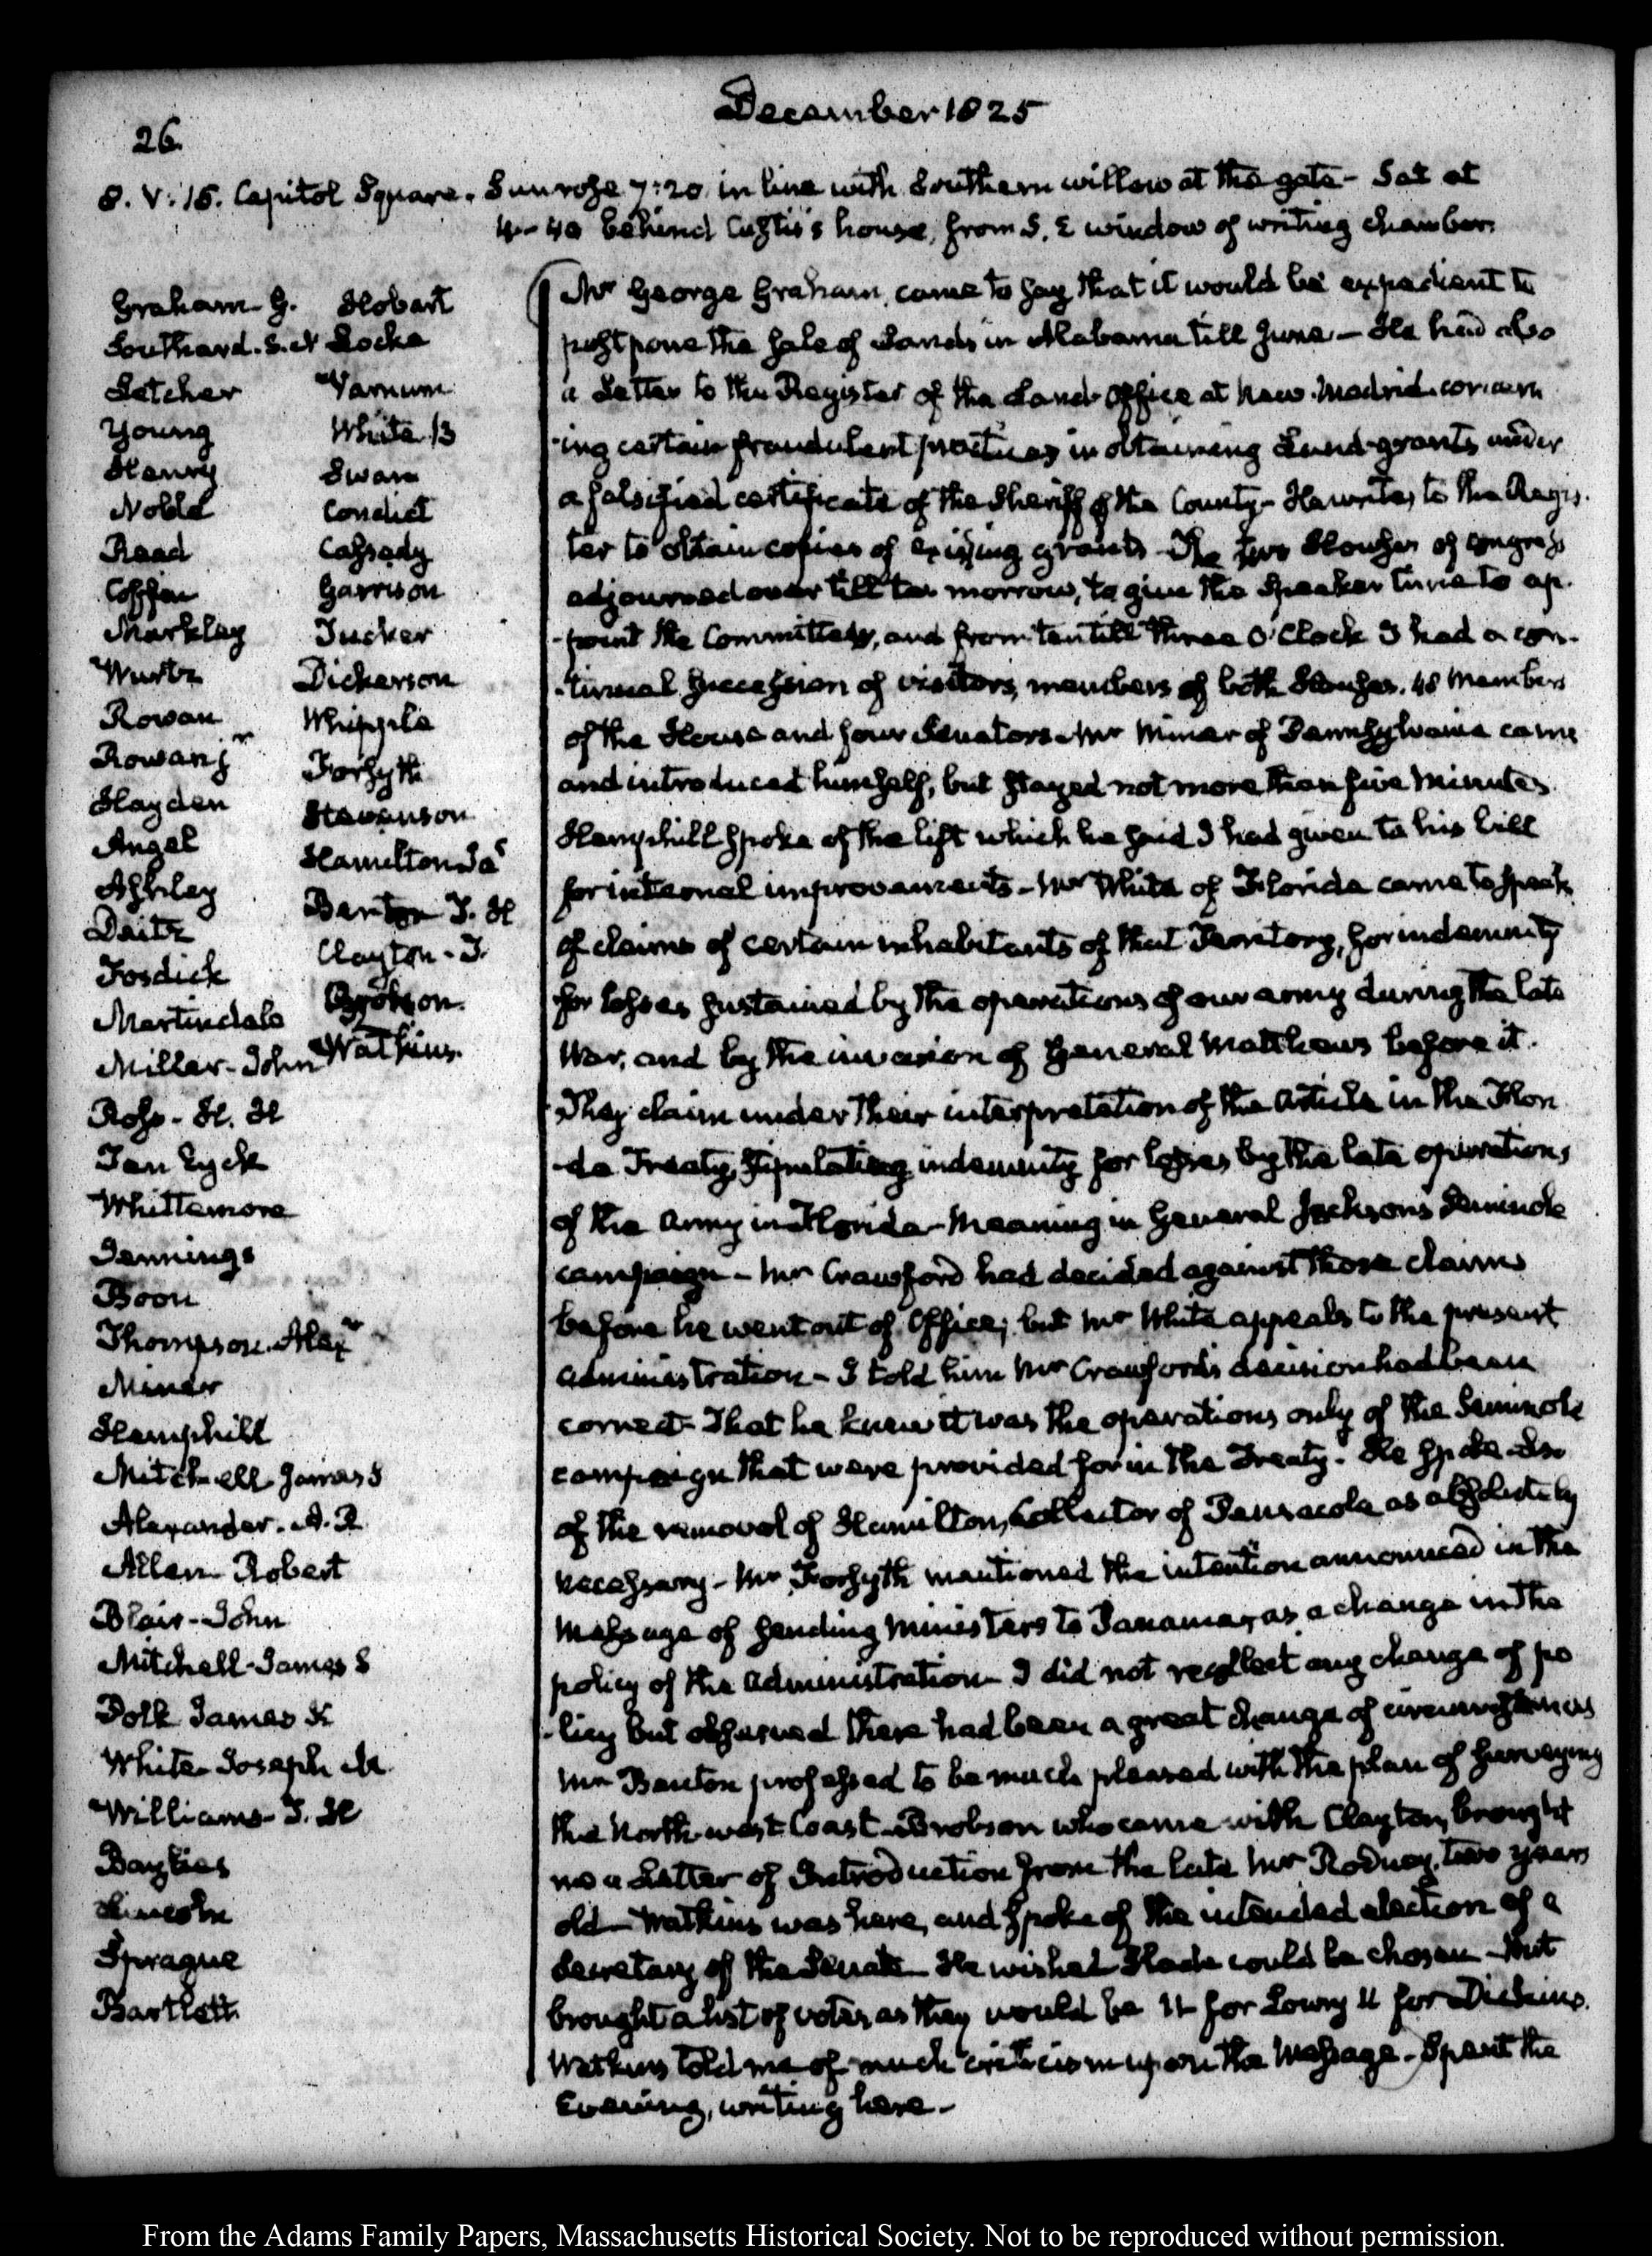 December 1825
26.
8. V:15. Capitol Square. Sun rose 7:20. in line with Southern willow at the gate - Set at
4-40 behind Custis's house, from S. E window of writing chamber.
Graham- G.
Southard. S. N
Letcher
Young
Henry
Noble
Read
Coffin
Markley
Wurtz
Rowan
Rowan jr
Hayden
Angel
Ashley
Deitz
Fosdick
Martindale
Miller- John
Ross- H. H
Ten Eyck
Whittemore
Jennings
Boon
Thompson. Alexr
Miner
Hemphill
Mitchell James S
Alexander. A. R
Allen- Robert
Blair- John
Mitchell- James S
Polk James K
White- Joseph M.
Williams- T. H
Baylies
Lincoln
Sprague
Bartlett
Hobart
Locke
Varnum
White B
Swan
Condict
Cassedy
Garrison
Tucker
Dickerson
Whipple
Forsyth
Stevenson
Hamilton Jas
Benton T. H
Clayton- T.
Brobson.
Watkins.
Mr George Graham, came to say that it would be expedient to
postpone the sale of Lands in Alabama till June - He had also
a Letter to the Register of the Land Office at New-Madrid. concern
-ing certain fraudulent practices in obtaining Land-grants under
a falsified certificate of the Sheriff of the County - He writes to the Regis.
ter to obtain copies of existing grants - The two Houses of Congress
adjourned over till to morrow, to give the Speaker time to ap.
-point the Committees, and from ten till three O'Clock I had a con-
-tinual succession of visitors, members of both Houses. 48 Members
of the House and four Senators. Mr Miner of Pennsylvania came
and introduced himself, but stayed not more than five minutes.
Hemphill spoke of the lift which he said I had given to his bill
for internal improvements - Mr White of Florida came to speak
of claims of certain inhabitants of that Territory, for indemnity
for losses sustained by the operations of our army during the late
War, and by the invasion of General Matthews before it.
They claim under their interpretation of the Article in the Flori
-da Treaty, stipulating indemnity for losses by the late operations
of the Army in Florida - Meaning in General Jackson's Seminole
campaign - Mr Crawford had decided against those claims
before he went out of Office; but Mr White appeals to the present
Administration - I told him Mr Crawford's decision had been
correct - That he knew it was the operations only of the Seminole
campaign that were provided for in the Treaty. He spoke also
of the removal of Hamilton, Collector of Pensacola as absolutely
necessary - Mr Forsyth mentioned the intention announced in the
Message of sending Ministers to Panama, as a change in the
policy of the Administration - I did not recollect any change of po
-licy but observed there had been a great change of circumstances
Mr Benton professed to be much pleased with the plan of surveying
the North-west Coast - Brobson who came with Clayton, brought
me a Letter of Introduction from the late Mr Rodney, two years
old - Watkins was here, and spoke of the intended election of a
Secretary of the Senate - He wished Slade could be chosen - but
brought a list of votes as they would be 11 for Lowry 11 for Dickins.
Watkins told me of much criticism upon the Message - Spent the
Evening, writing here -
From the Adams Family Papers, Massachusetts Historical Society. Not to be reproduced without permission.